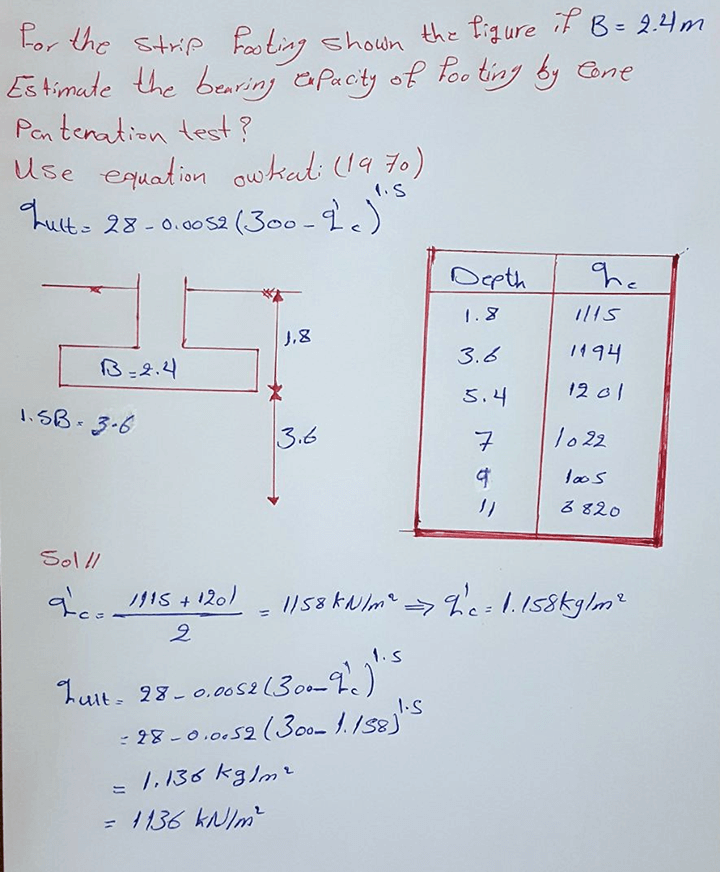 For the strip footing shown the figure if B = 2.4m
Estimate the bearing capacity of footing by cone
Pentenration test?
Use equation owkati (1970)
qult = 28 - 0.0052 (300 - q'c)^1.5
1.8
B = 2.4
1.5B = 3.6
3.6
Depth qc
1.8 1115
3.6 1194
5.4 1201
7 1022
9 1005
11 3820
Sol//
q'c = (1115 + 1201)/2 = 1158 kN/m² ⇒ q'c = 1.158 kg/m²
qult = 28 - 0.0052 (300 - q'c)^1.5
= 28 - 0.0052 (300 - 1.158)^1.5
= 1.136 kg/m²
= 1136 kN/m²